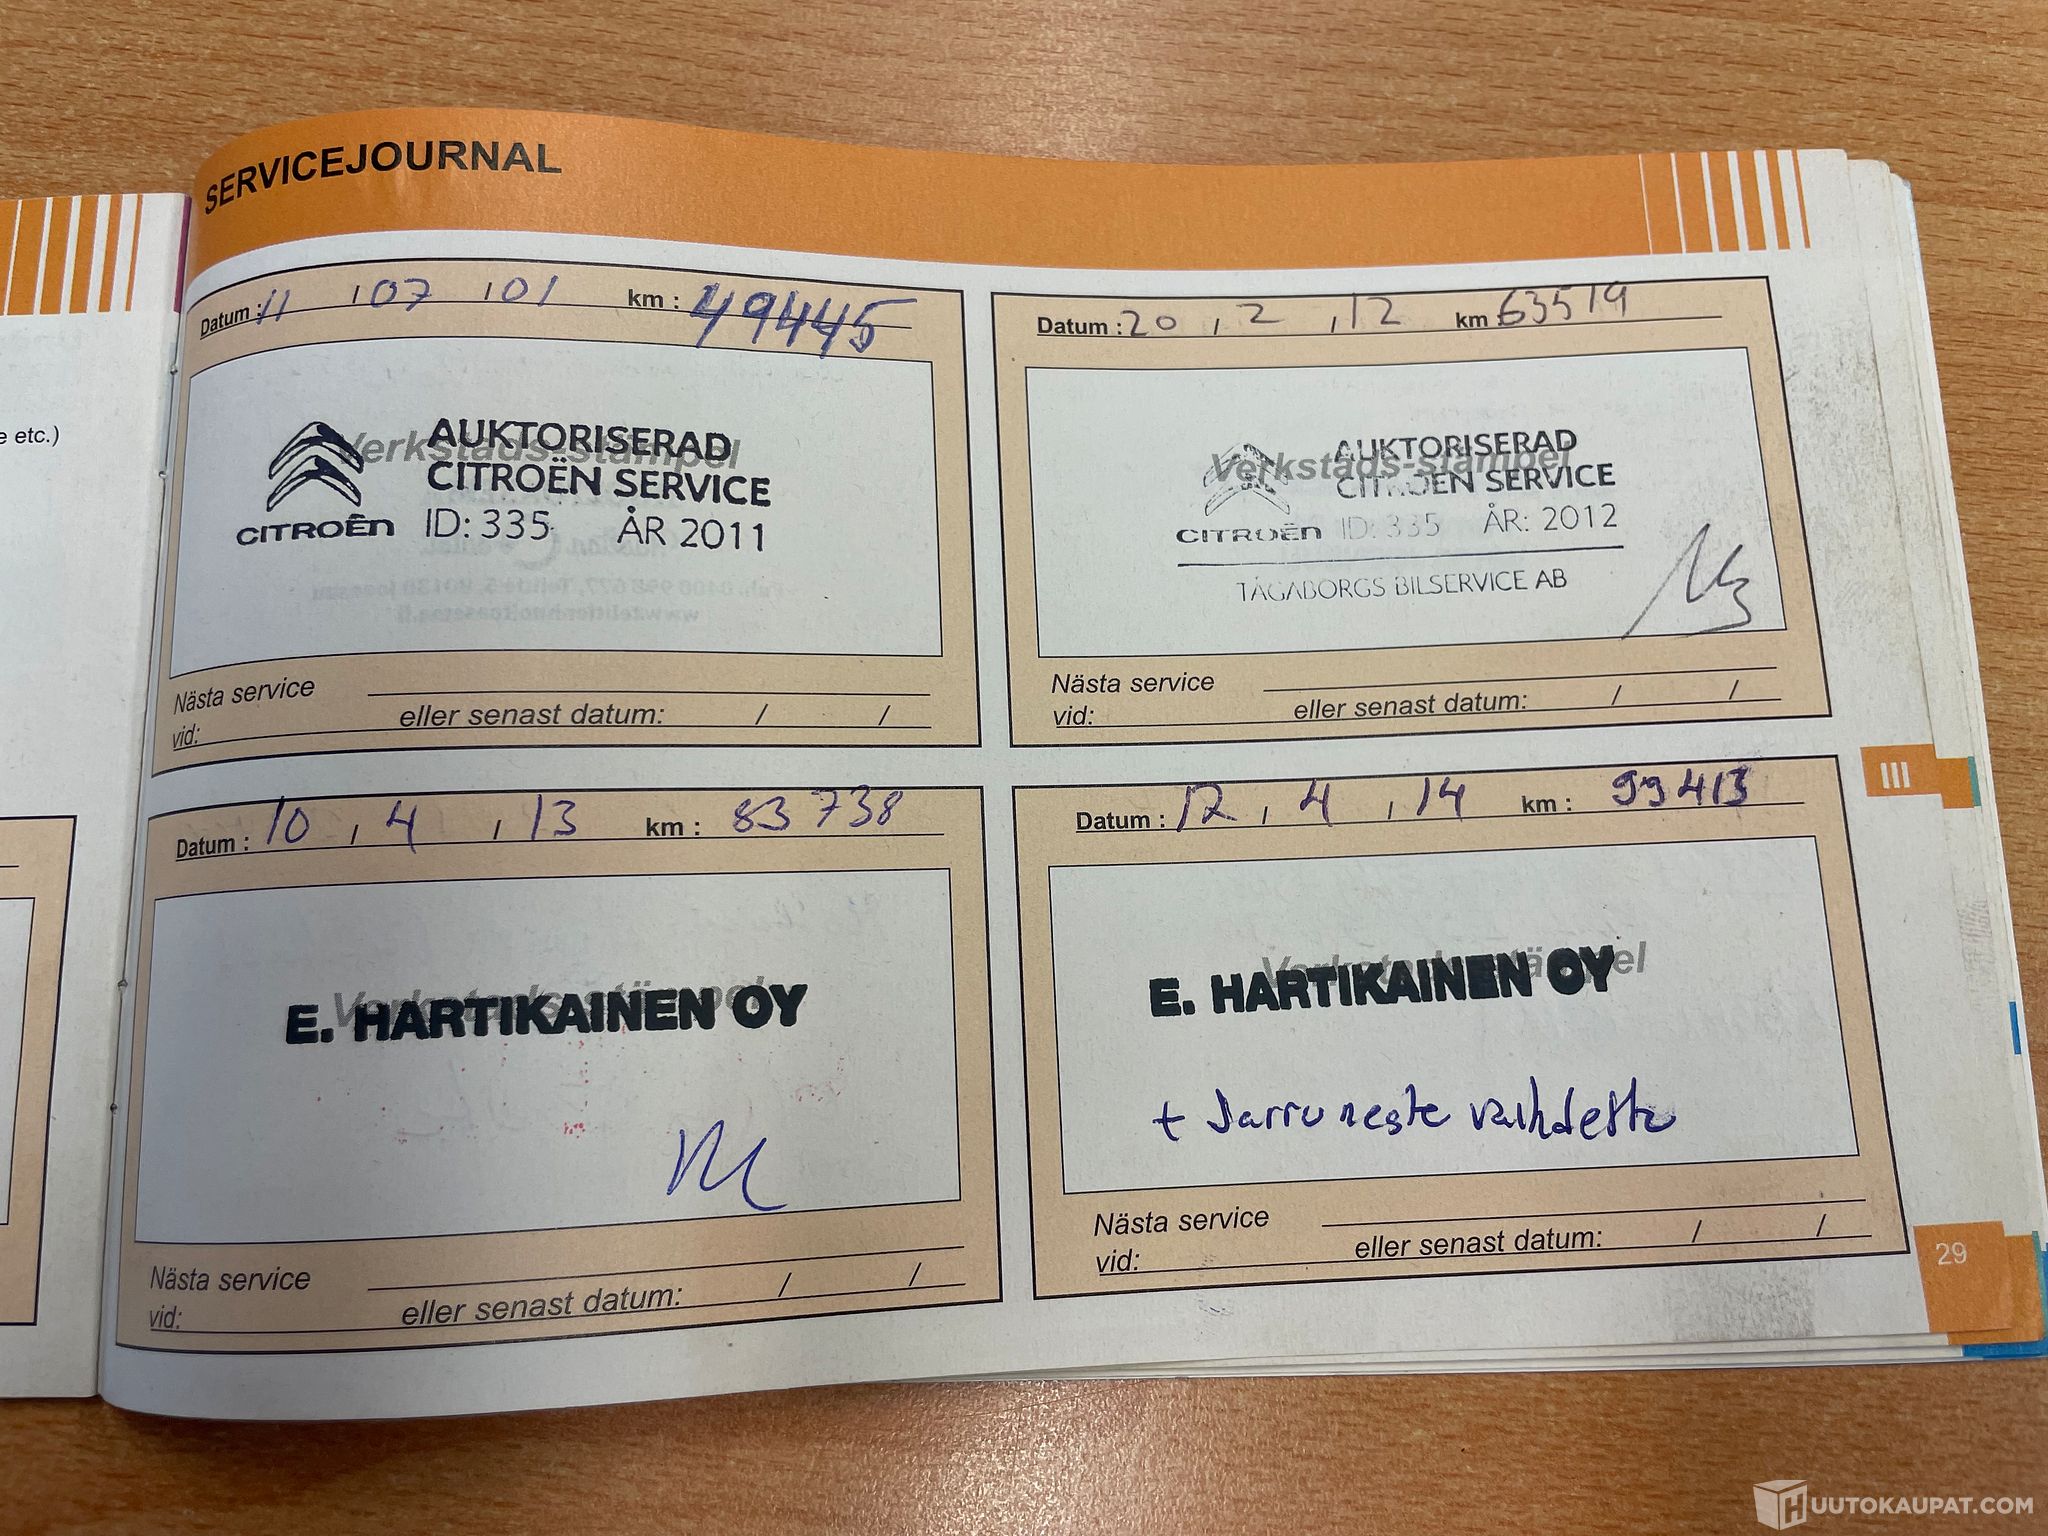 SERVICEJOURNAL
e etc.)
Datum : 11 , 07 , 01 km : 49445
Verkstads-stämpel
AUKTORISERAD
CITROËN SERVICE
CITROËN ID: 335 ÅR 2011
Nästa service
vid:
eller senast datum: / /
Datum : 20 , 2 , 12 km : 63519
Verkstads-stämpel
AUKTORISERAD
CITROËN SERVICE
CITROËN ID: 335 ÅR: 2012
TÅGABORGS BILSERVICE AB
Nästa service
vid:
eller senast datum: / /
Datum : 10 , 4 , 13 km : 83738
Verkstads-stämpel
E. HARTIKAINEN OY
Nästa service
vid:
eller senast datum: / /
Datum : 12 , 4 , 14 km : 99413
Verkstads-stämpel
E. HARTIKAINEN OY
+ Jarruneste vaihdettu
Nästa service
vid:
eller senast datum: / /
III
29
HUUTOKAUPAT.COM